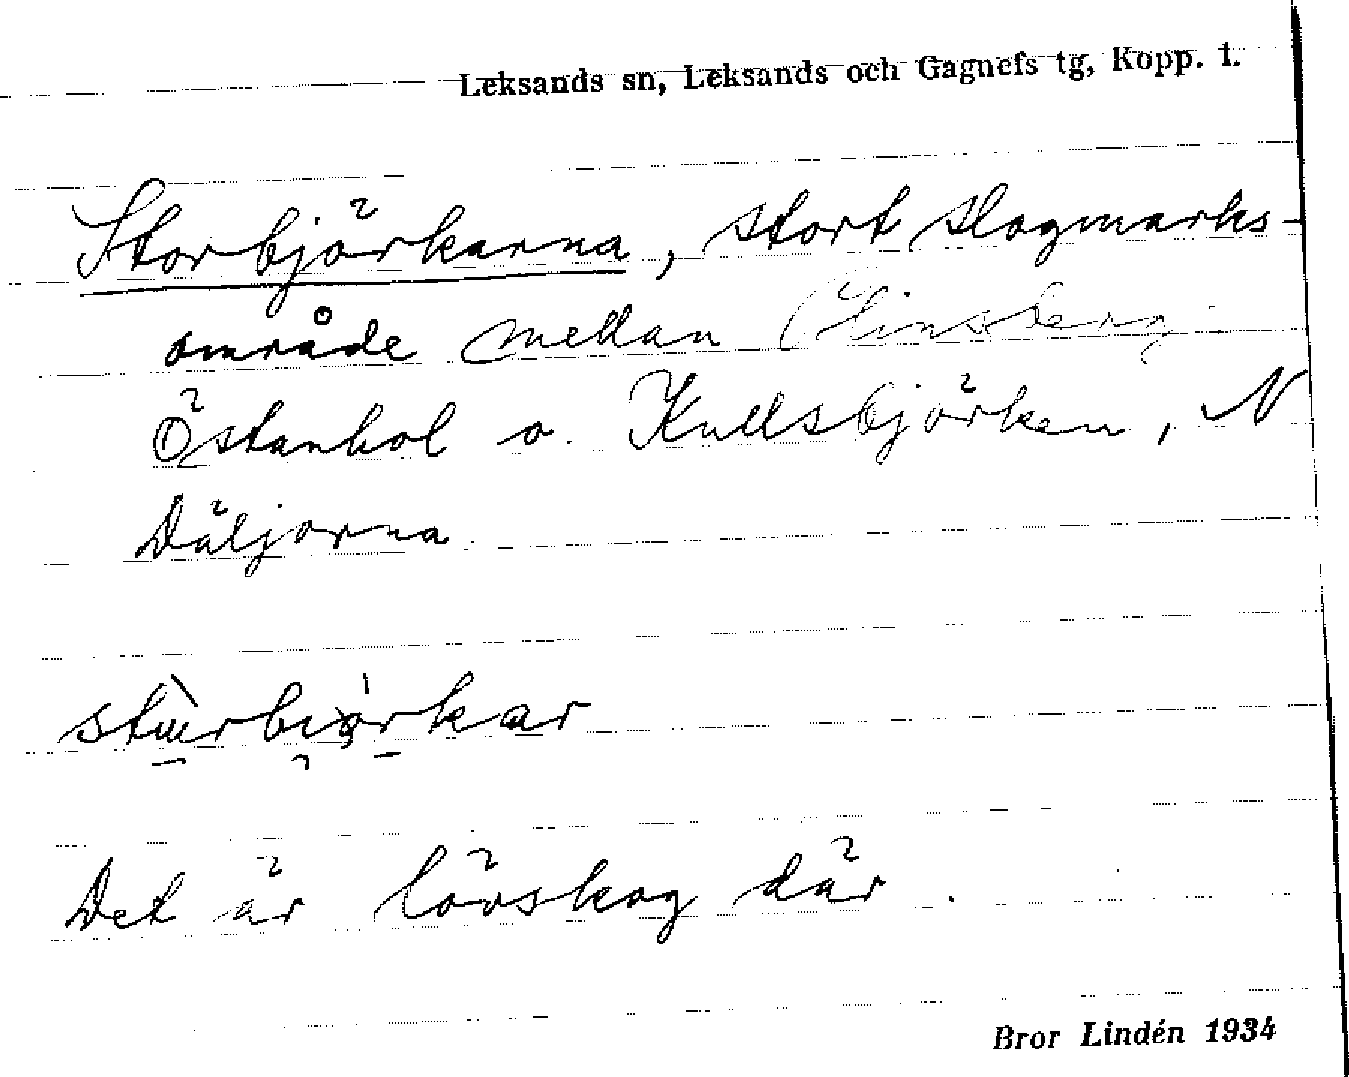 Leksands sn, Leksands och Gagnefs tg, Kopp. l.
Storbjörkarna, stort slogmarks-
område mellan (Hinsberg
Östanhol o. Kullsbjörken, N
Däljorna
Det är lövskog där.
Bror Lindén 1934